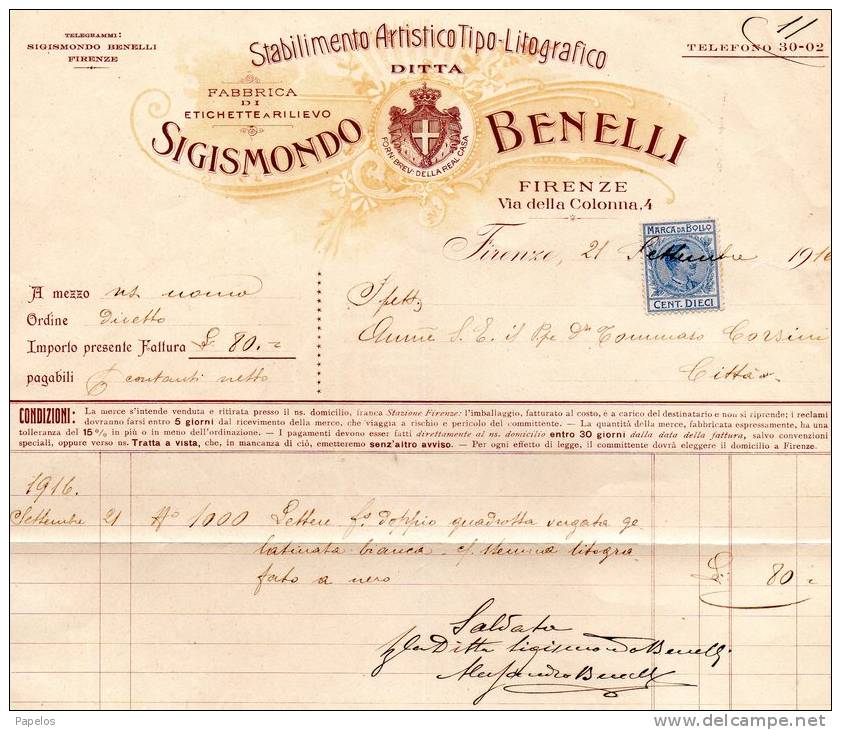 TELEGRAMMI:
SIGISMONDO BENELLI
FIRENZE
11
TELEFONO 30-02
Stabilimento Artistico Tipo-Litografico
DITTA
FABBRICA
DI
ETICHETTE A RILIEVO
SIGISMONDO BENELLI
FORN. BREV. DELLA REAL CASA
FIRENZE
Via della Colonna, 4
Firenze, 21 Settembre 1916
MARCA DA BOLLO
CENT. DIECI
A mezzo ns. nome
Ordine diretto
Importo presente Fattura £. 80.-
pagabili contanti netto
Spett
Amm̃e S. E. il Ppe Dn Tommaso Corsini
Città
CONDIZIONI: La merce s'intende venduta e ritirata presso il ns. domicilio, franca Stazione Firenze: l'imballaggio, fatturato al costo, è a carico del destinatario e non si riprende; i reclami
dovranno farsi entro 5 giorni dal ricevimento della merce, che viaggia a rischio e pericolo del committente. — La quantità della merce, fabbricata espressamente, ha una
tolleranza del 15% in più o in meno dell'ordinazione. — I pagamenti devono esser fatti direttamente al ns. domicilio entro 30 giorni dalla data della fattura, salvo convenzioni
speciali, oppure verso ns. Tratta a vista, che, in mancanza di ciò, emetteremo senz'altro avviso. — Per ogni effetto di legge, il committente dovrà eleggere il domicilio a Firenze.
1916.
Settembre 21 No 1000 Lettere fo doppio quadrotta vergata ge
latinata bianca c/ stemma litogra
fato a nero £. 80.-
Saldato
p la Ditta Sigismondo Benelli
Alessandro Benelli
Papelos
delcampe.net